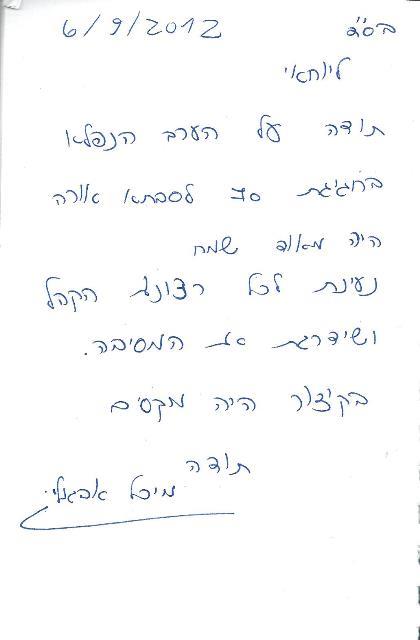 בס"ד 6/9/2012
ליוחאי
תודה על הערב הנפלא
בחגיגת 70 לסבתא אורה
היה מאוד שמח
נענית לכל רצונות הקהל
ושידרגת את המסיבה.
בקיצור היה מקסים
תודה
מיכל